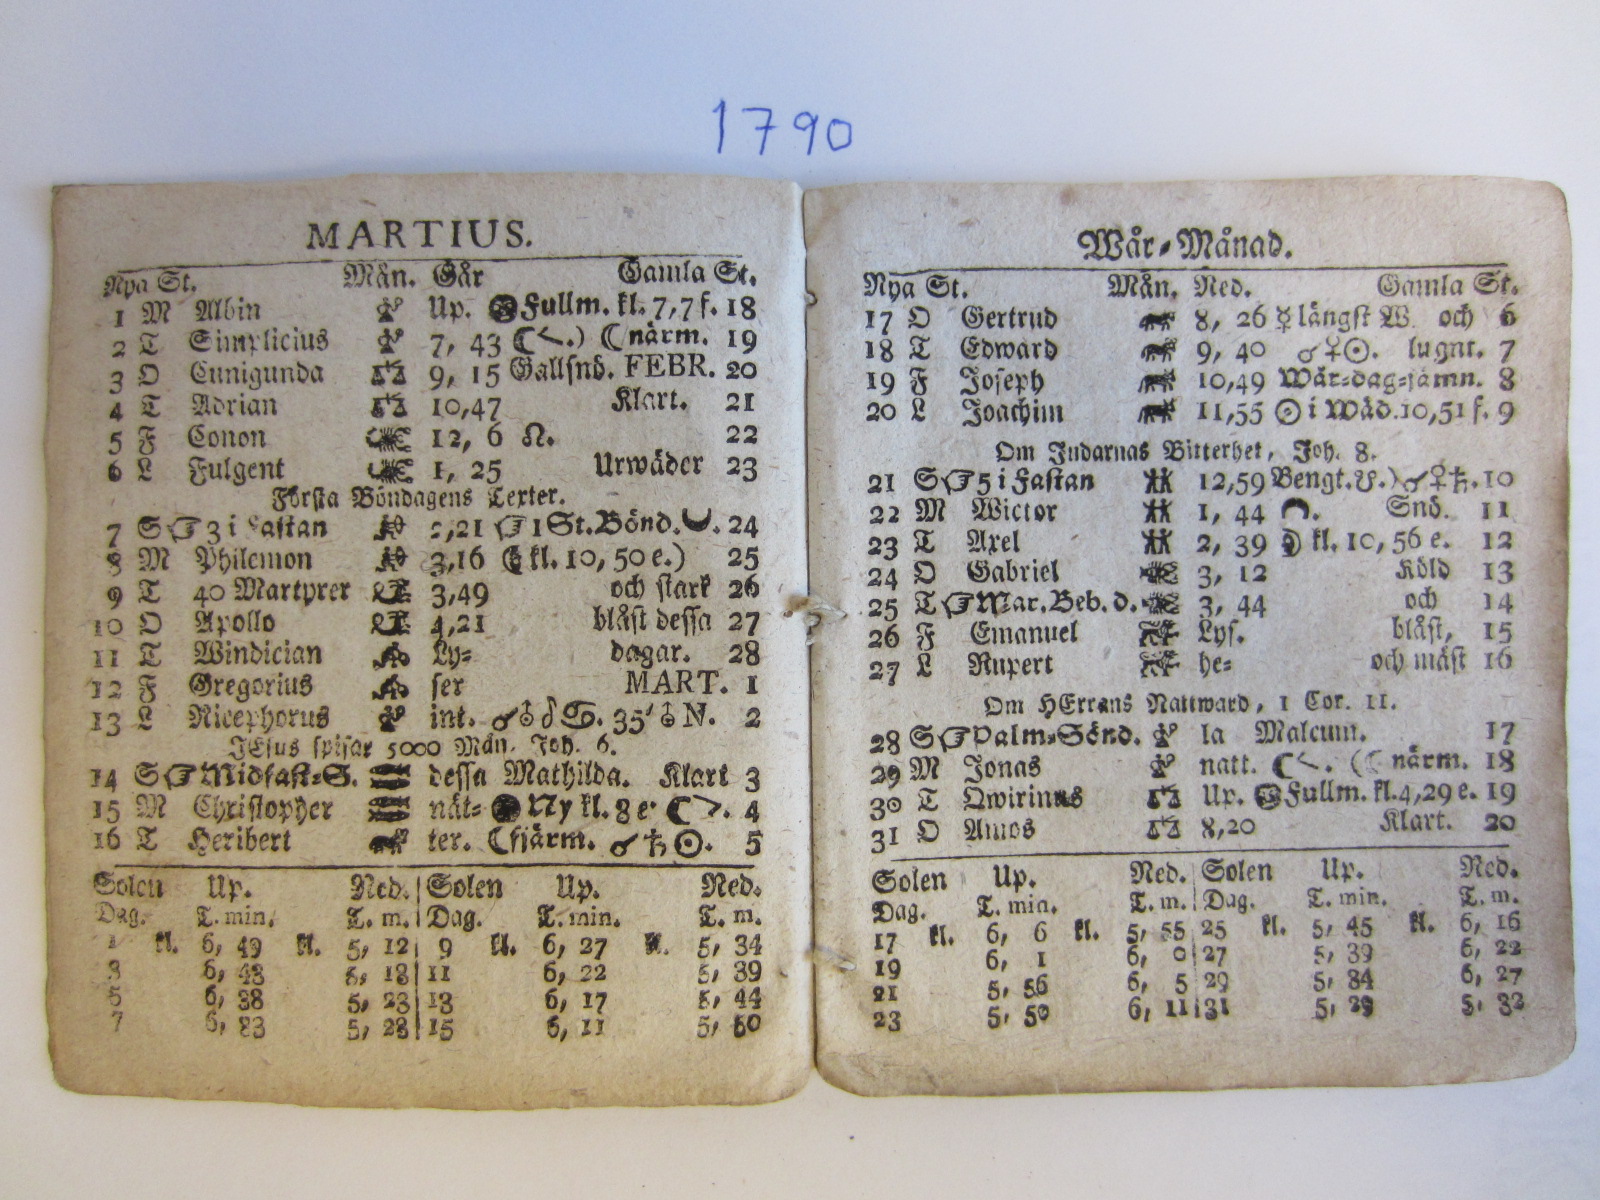 1790
MARTIUS.
Nya St. Mån. Går Gamla St.
1 M Albin Up. Fullm. kl. 7,7 f. 18
2 T Simplicius 7, 43 ☾ .) ☾ närm. 19
3 O Cunigunda 9, 15 Gallsnö. FEBR. 20
4 T Adrian 10,47 Klart. 21
5 F Conon 12, 6 ☊. 22
6 L Fulgent 1, 25 Urwäder 23
Första Böndagens Texter.
7 S ☞ 3 i Fastan ,21 ☞ 1 St. Bönd. 24
8 M Philemon 3,16 kl. 10, 50 e.) 25
9 T 40 Martyrer 3,49 och stark 26
10 O Apollo 4,21 blåst dessa 27
11 T Windician Ly= dagar. 28
12 F Gregorius ser MART. 1
13 L Nicephorus int. ☌ ♁ ♋. 35′ N. 2
JEsus spisar 5000 Män. Joh. 6.
14 S ☞ Midfast=S. dessa Mathilda. Klart 3
15 M Christopher nät= Ny kl. 8 e. ☾ . 4
16 T Heribert ter. ☾ fjärm. ☌ ♄ ☉. 5
Solen Up. Ned. Solen Up. Ned.
Dag. T. min. T. m. Dag. T. min. T. m.
1 kl. 6, 49 kl. 5, 12 9 kl. 6, 27 kl. 5, 34
3 6, 43 5, 18 11 6, 22 5, 39
5 6, 38 5, 23 13 6, 17 5, 44
7 6, 33 5, 28 15 6, 11 5, 50
Wår=Månad.
Nya St. Mån. Ned. Gamla St.
17 O Gertrud 8, 26 ☿ längst W. och 6
18 T Edward 9, 40 ☌ ♀ ☉. lugnt. 7
19 F Joseph 10,49 Wår=dag=jämn. 8
20 L Joachim 11,55 ☉ i Wäd. 10,51 f. 9
Om Judarnas Bitterhet, Joh. 8.
21 S ☞ 5 i Fastan 12,59 Bengt. ☋.) ☌ ♀ ♄. 10
22 M Wictor 1, 44 . Snö. 11
23 T Axel 2, 39 kl. 10, 56 e. 12
24 O Gabriel 3, 12 Köld 13
25 T ☞ Mar. Beb. d. 3, 44 och 14
26 F Emanuel Lys. blåst, 15
27 L Rupert he= och mäst 16
Om HErrans Nattward, 1 Cor. 11.
28 S ☞ Palm=Sönd. la Malcum. 17
29 M Jonas natt. ☾ . (☾ närm. 18
30 T Qwirinus Up. Fullm. kl. 4,29 e. 19
31 O Amos 8,20 Klart. 20
Solen Up. Ned. Solen Up. Ned.
Dag. T. min. T. m. Dag. T. min. T. m.
17 kl. 6, 6 kl. 5, 55 25 kl. 5, 45 kl. 6, 16
19 6, 1 6, 0 27 5, 39 6, 22
21 5, 56 6, 5 29 5, 34 6, 27
23 5, 50 6, 11 31 5, 29 5, 32